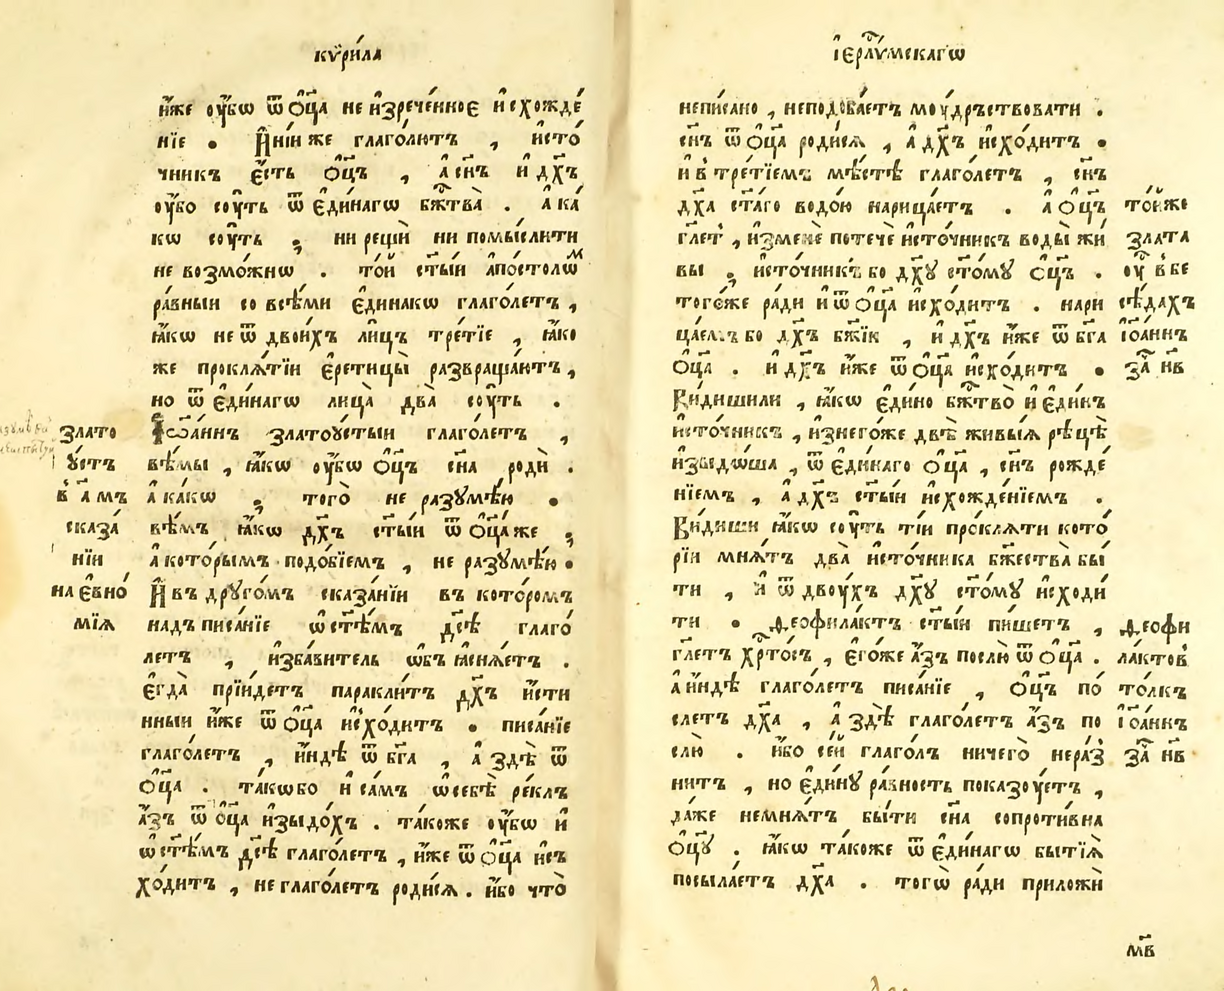 кѷри́ла
и҆́же ᲂу҆́бѡ ѿ ѻ҆ц҃а неизрече́нноє и҆схожде́
нїе . И҆ні́и же глаго́лит , и҆сто́
чникъ є҆́сть ѻ҆ц҃ъ , а҆ сн҃ъ и҆ дх҃ъ
ᲂу҆́бо соу́ть ѿ є҆ди́нагѡ бжⷭ҇тва̀ . а҆ ка́
кѡ соу́ть , ни рещѝ ни помы́слити
не возмо́жнѡ . то́й ст҃ы́и а҆по́столѡⷨ
ра́вныи со всѣ́ми є҆ди́накѡ глаго́летъ ,
ꙗ҆́кѡ не ѿ двои́хъ ли́цъ тре́тїе , ꙗ҆́ко
же прокла́тїи є҆ретицы̀ развраща́ютъ ,
но ѿ є҆ди́нагѡ лица̀ два̀ соу́ть .
І҆ѡа́ннъ златоу́стыи глаго́летъ ,
вѣ́мы , ꙗ҆́кѡ ᲂу҆́бѡ ѻ҆ц҃ъ сн҃а родѝ .
а҆ ка́кѡ , того̀ не разꙋмѣ́ю .
вѣ́мъ ꙗ҆́кѡ дх҃ъ ст҃ы́и ѿ ѻ҆ц҃а же ,
а҆ кото́рымъ подо́бїемъ , не разꙋмѣ́ю .
И҆ въ дрꙋго́мъ сказа́нїи въ кото́ромъ
надъписа́нїе ѡ҆ ст҃ѣ́мъ дс҃ѣ глаго́
летъ , и҆зба́витель ѡ҆бъꙗсня́етъ .
є҆гда̀ прїи́детъ паракли́тъ дх҃ъ и҆́сти
нныи и҆́же ѿ ѻ҆ц҃а и҆схо́дитъ . писа́нїе
глаго́летъ , и҆́ндѣ ѿ бг҃а , а҆ здѣ̀ ѿ
ѻ҆ц҃а . та́кѡбо и҆ са́мъ ѡ҆ себѣ̀ ре́клъ
а҆́зъ ѿ ѻ҆ц҃а и҆зыдо́хъ . та́коже ᲂу҆́бѡ и҆
ѡ҆ ст҃ѣ́мъ дс҃ѣ глаго́летъ , и҆́же ѿ ѻ҆ц҃а и҆съ
хо́дитъ , не глаго́летъ роди́сѧ . и҆́бо что̀
злато
ꙋ҆́стъ
в҃ а҃ мъ
сказа́
нїи
на є҆вно́
мїѧ
і҆ерⷭ҇лꙋ́мскагѡ
непи́сано , неподоба́етъ моу́дръствовати .
сн҃ъ ѿ ѻ҆ц҃а роди́сѧ , а҆ дх҃ъ и҆схо́дитъ .
и҆ в тре́тїемъ мѣ́стѣ глаго́летъ , сн҃ъ
дх҃а ст҃а́го водо́ю нарица́етъ . а҆ ѻ҆ц҃ъ
гл҃етъ , и҆зменѐ потечѐ и҆сто́чникъ воды̀ жи́
вы , и҆сто́чникъ бо дх҃ꙋ ст҃о́мꙋ ѻ҆ц҃ъ .
тогѡ́же ра́ди и҆ ѿ ѻ҆ц҃а и҆схо́дитъ . нари
ца́емъ бо дх҃ъ бж҃їи , и҆ дх҃ъ и҆́же ѿ бг҃а
ѻ҆ц҃а . и҆ дх҃ъ и҆́же ѿ ѻ҆ц҃а и҆схо́дитъ .
Ви́дишили , ꙗ҆́кѡ є҆ди́но бжⷭ҇тво̀ и҆ є҆ди́нъ
и҆сто́чникъ , и҆знего́же двѣ̀ живы́ѧ рѣ́цѣ
и҆зыдо́ша , ѿ є҆ди́наго ѻ҆ц҃а , сн҃ъ рожде́
нїемъ , а҆ дх҃ъ ст҃ы́и и҆схожде́нїемъ .
Ви́диши ꙗ҆́кѡ соу́ть ті́и про́клѧти кото́
рїи мнѧ́тъ два̀ и҆сто́чника бж҃ества̀ бы́
ти , и҆ ѿ двоу́хъ дх҃ꙋ ст҃о́мꙋ и҆сходи́
ти . Ѳеофила́ктъ ст҃ы́и пи́шетъ ,
гл҃етъ хрⷭ҇то́съ , є҆го́же а҆́зъ послю̀ ѿ ѻ҆ц҃а .
а҆ и҆́ндѣ глаго́летъ писа́нїе , ѻ҆ц҃ъ по́
слетъ дх҃а , а҆ здѣ̀ глаго́летъ а҆́зъ по
слю̀ . и҆́бо се́й глаго́лъ ничего̀ нера́з
нитъ , но є҆ди́нꙋ ра́вность показоу́етъ ,
да́же немнѧ́тъ бы́ти сн҃а сопроти́вна
ѻ҆ц҃ꙋ . ꙗ҆́кѡ та́коже ѿ є҆ди́нагѡ бытїѧ̀
посыла́етъ дх҃а . тогѡ̀ ра́ди приложѝ
то́йже
злата
ᲂу҆ в бе
сѣ́дахъ
і҆ѡа́ннъ
за́ⷱ҇ н҃в
ѳеофи
ла́ктов
то́лкъ
і҆ѡа́ннъ
за́ⷱ҇ н҃в
м҃в